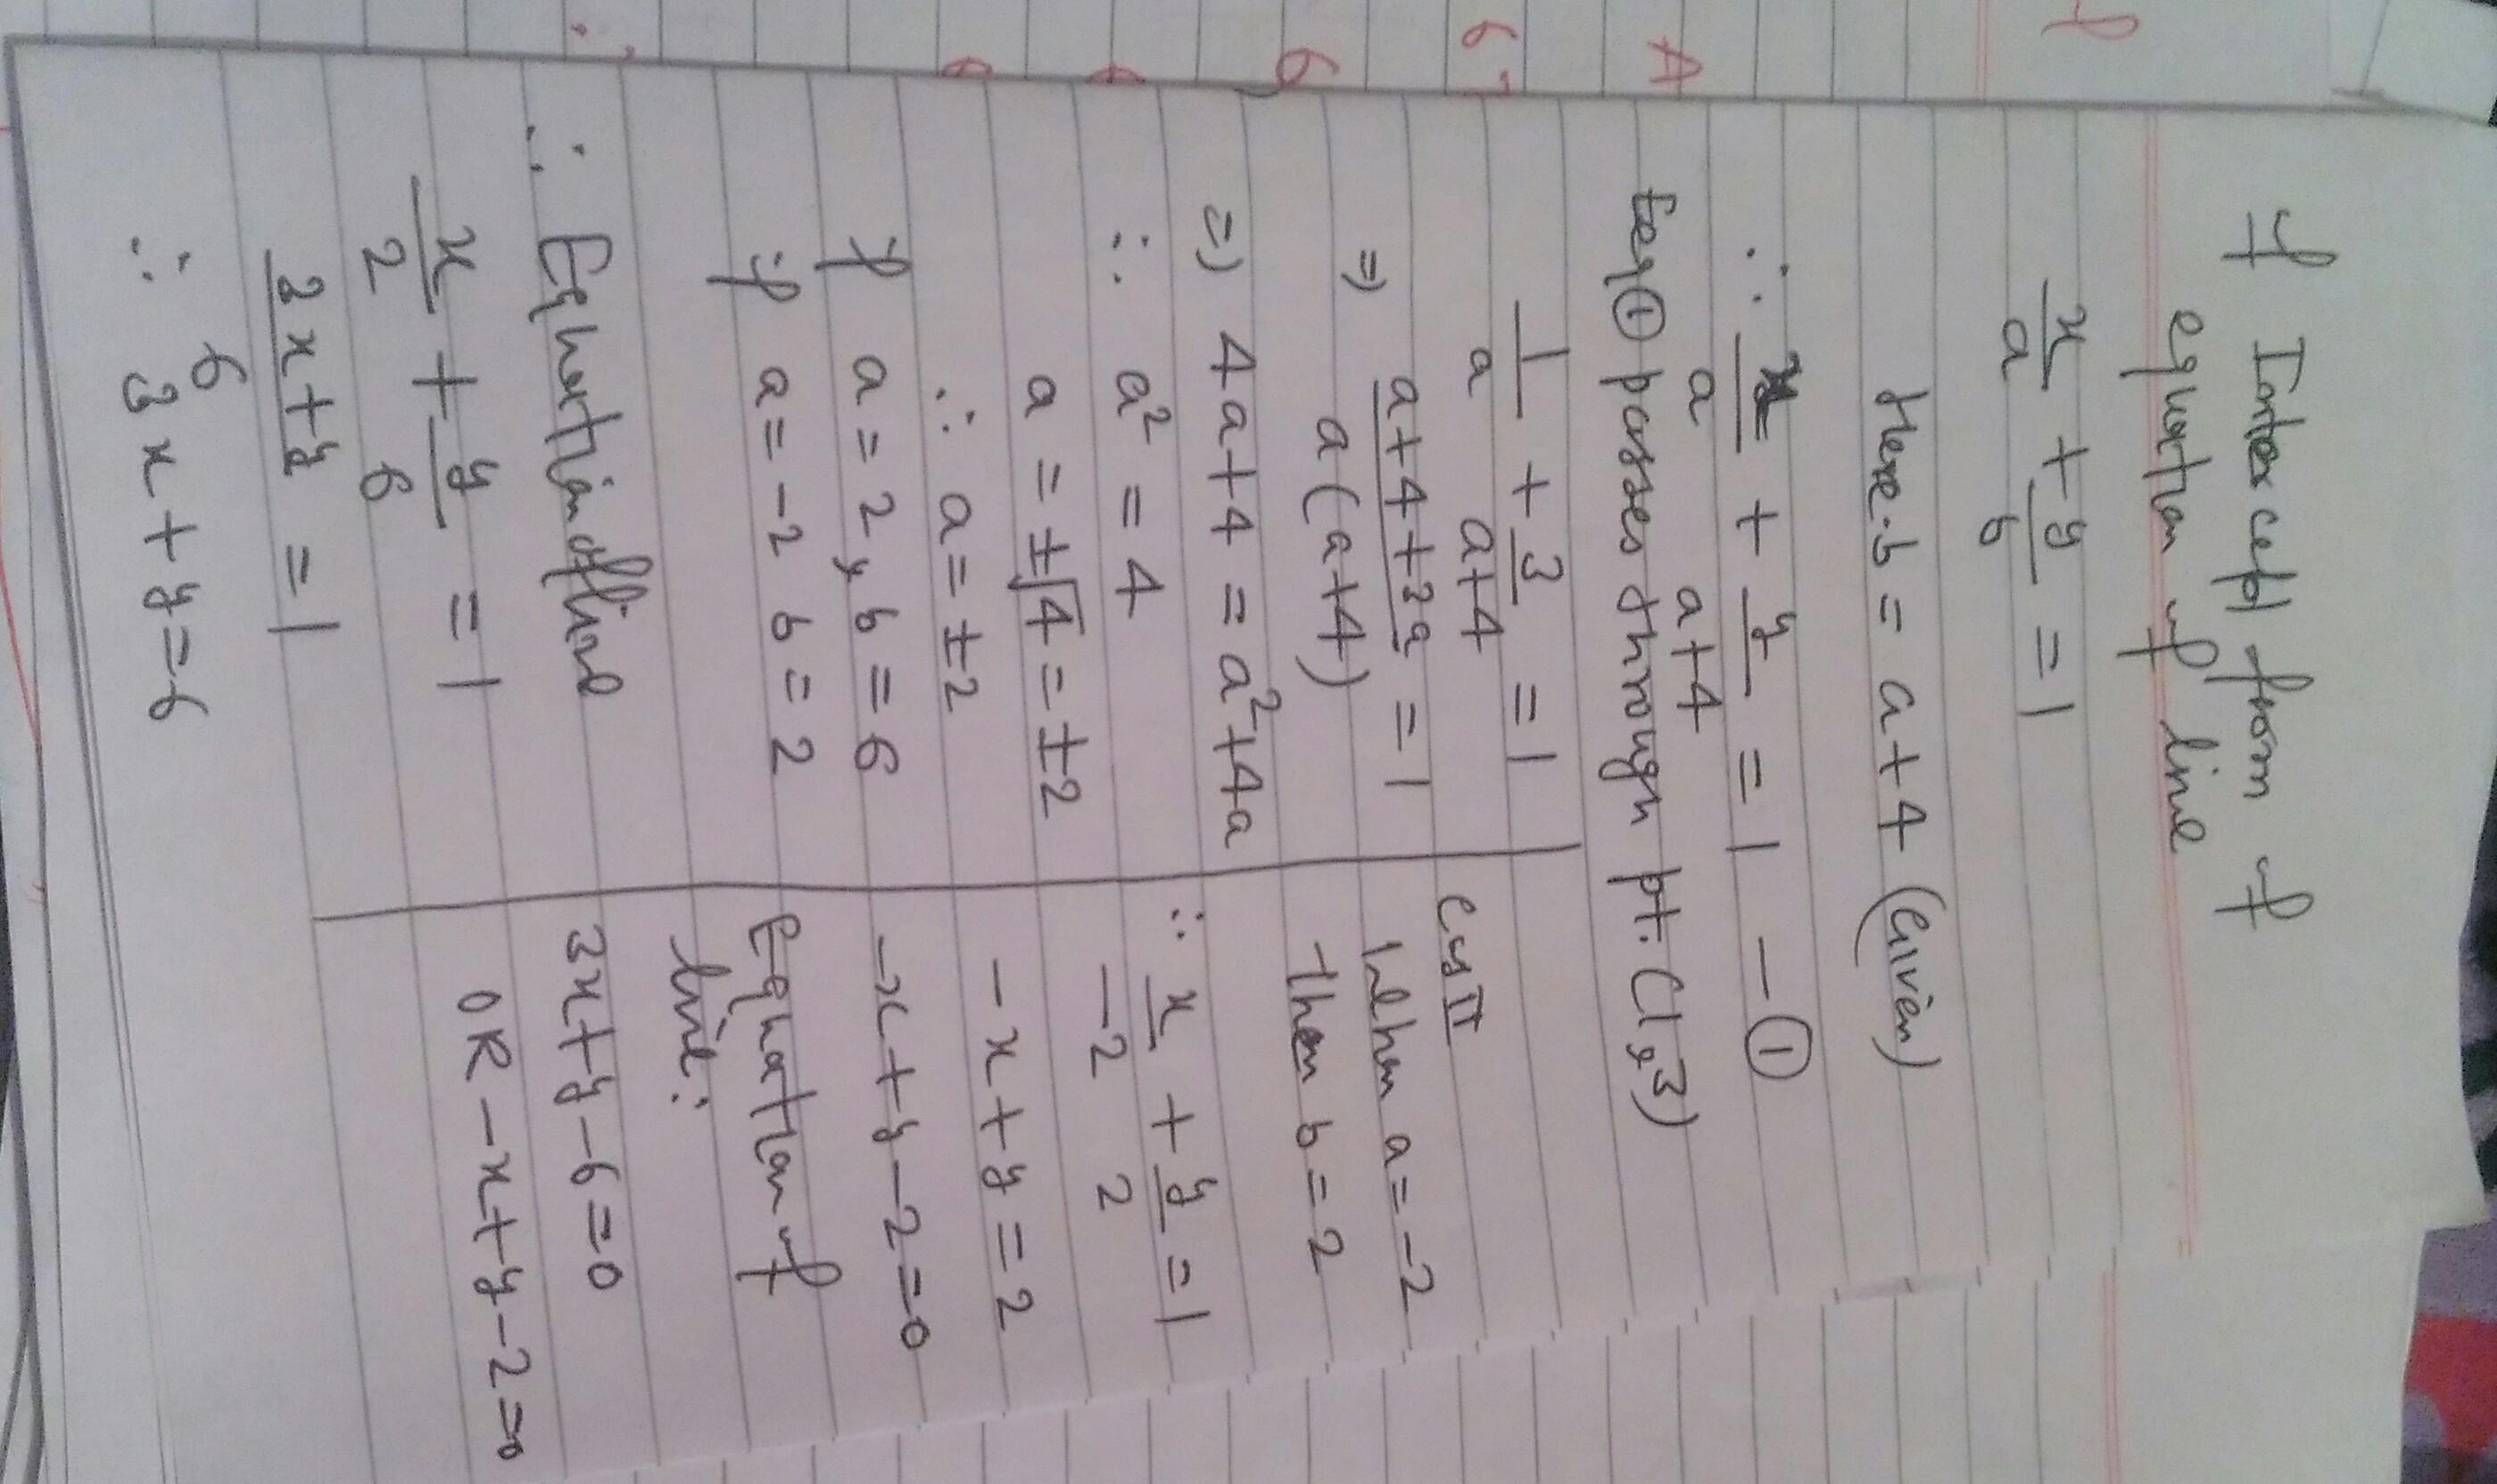 If Intercept from of
equation of line
x/a + y/b = 1
Here b = a+4 (Given)
∴ x/a + y/a+4 = 1 — ①
Eeq ① passes through pt. (1,3)
1/a + 3/a+4 = 1
⇒ a+4+3a / a(a+4) = 1
⇒ 4a+4 = a²+4a
∴ a² = 4
a = ±√4 = ±2
∴ a = ±2
if a = 2, b = 6
if a = -2 b = 2
∴ Equation of line
x/2 + y/6 = 1
3x+y / 6 = 1
∴ 3x + y = 6
Cas II
When a = -2
then b = 2
∴ x/-2 + y/2 = 1
-x + y = 2
-x + y - 2 = 0
Equation of
line:
3x + y - 6 = 0
OR -x + y - 2 = 0